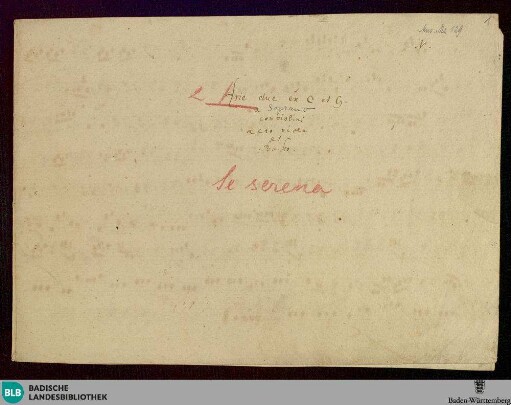 Mus. Ms. 129
1
V.
2 Arie due ex C et G.
a Soprano
con violini
alto viola
et
Basso
Se serena
BLB BADISCHE
LANDESBIBLIOTHEK
Baden-Württemberg